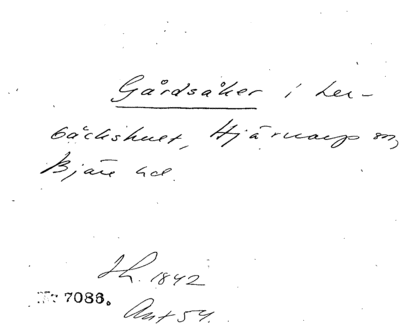 Gårdsåker i Ler-
bäckshult, Hjärnarp sn,
Bjäre hd.
Lh. 1842
Nr 7086.
Ant 54.